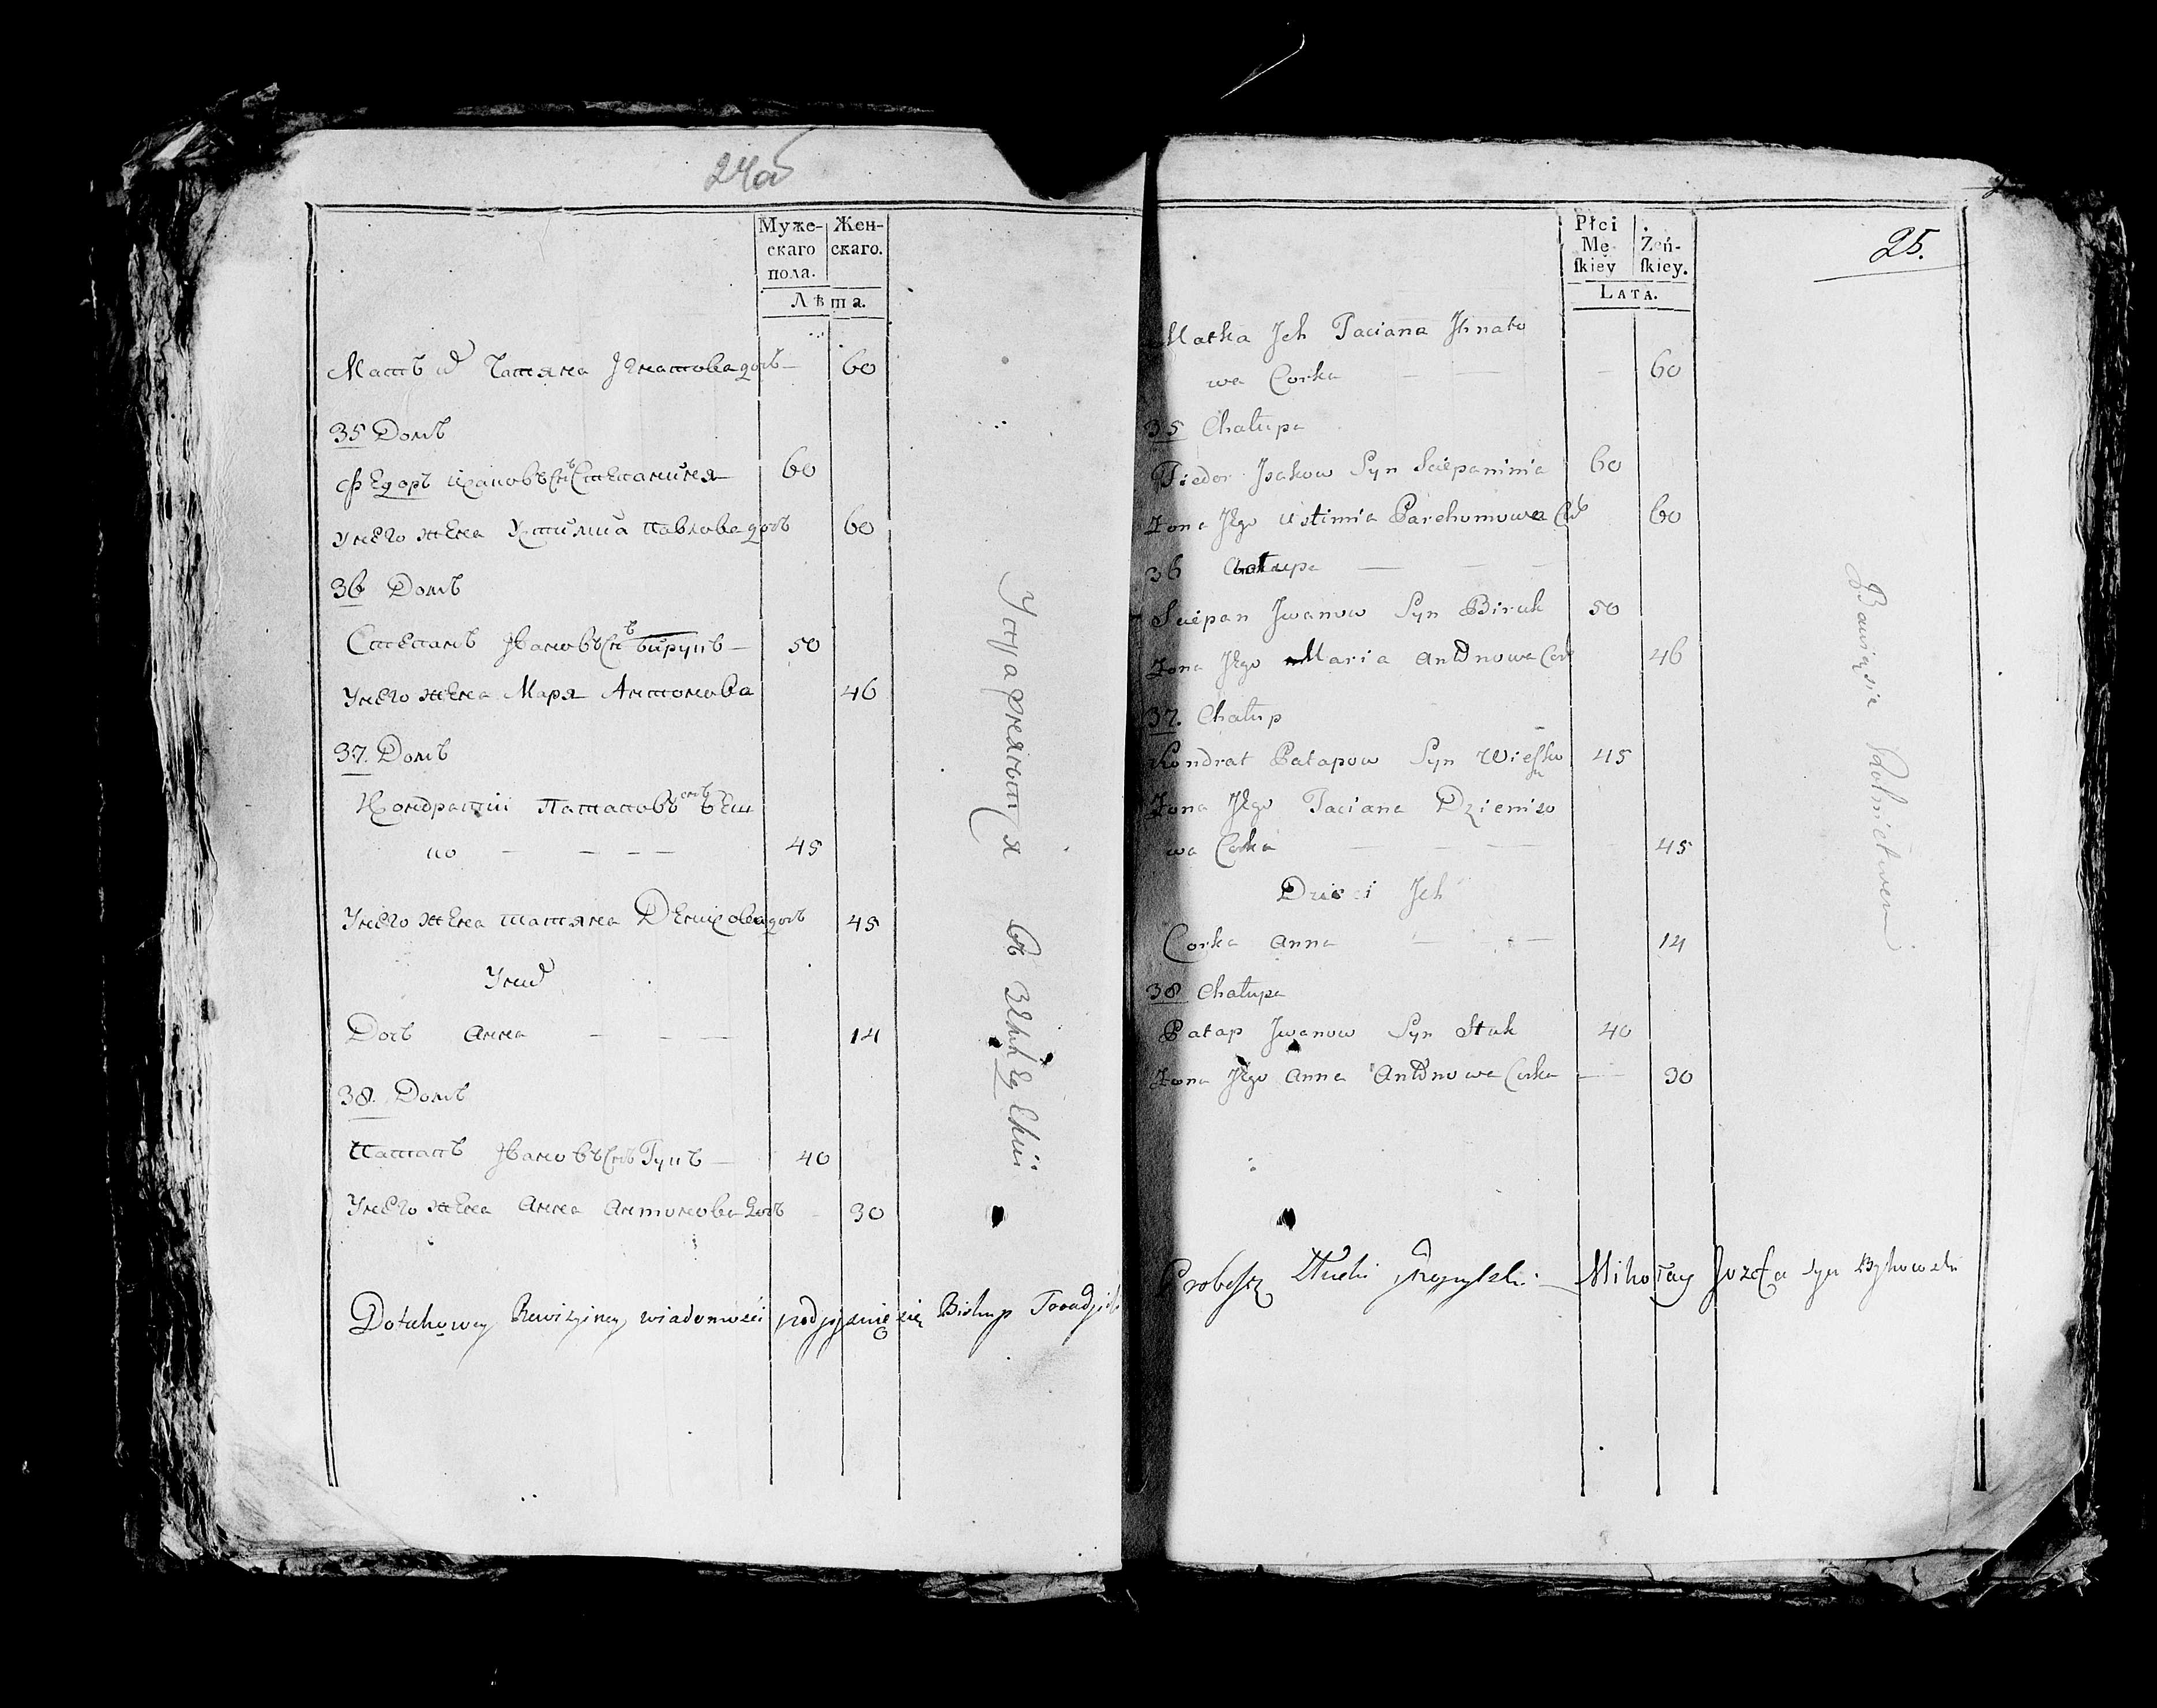 24об
Муже-
скаго
пола.
Жен-
скаго.
Лѣта.
Мать их Татяна Игнатова дочь 60
35 Домъ
Федоръ Исаковъ снъ Степаниня 60
У него жена Устимия Павлова дочь 60
36 Домъ
Степанъ Ивановъ снъ Бирукъ 50
У него жена Маря Антонова 46
37. Домъ
Кондратий Патаповъ снъ
45
У него жена Татяна Денисова дочь 45
У них
Дочь Анна 14
38. Домъ
Патапъ Ивановъ снъ 40
У него жена Анна Антонова дочь 30
Dotakowey Rewizyiney wiadomości podpisuie się Biskup
Płci
Mę-
ſkiey
Żeń-
ſkiey.
Lata.
25.
Matka Jch Taciana Jhnato
wa Corka 60
35 Chałupa
Fiedor Jsakow Syn Sciepaninia 60
Żona Jego Ustimia Parchomowa 60
36 Chałupa
Sciepan Jwanow Syn Biruk 50
Żona Jego Maria Antonowa Cor 46
37. Chałup
Kondrat Patapow Syn Wieſko 45
Żona Jego Taciana Dziemiso
wa Corka 45
Dzieci Jch
Corka Anna 14
38 Chałupa
Patap Jwanow Syn Stuk 40
Żona Jego Anna Antonowa Corka 30
Proboſzcz Mikołay Jozefa syn Bykowski
Bawią sie Rolnictwem